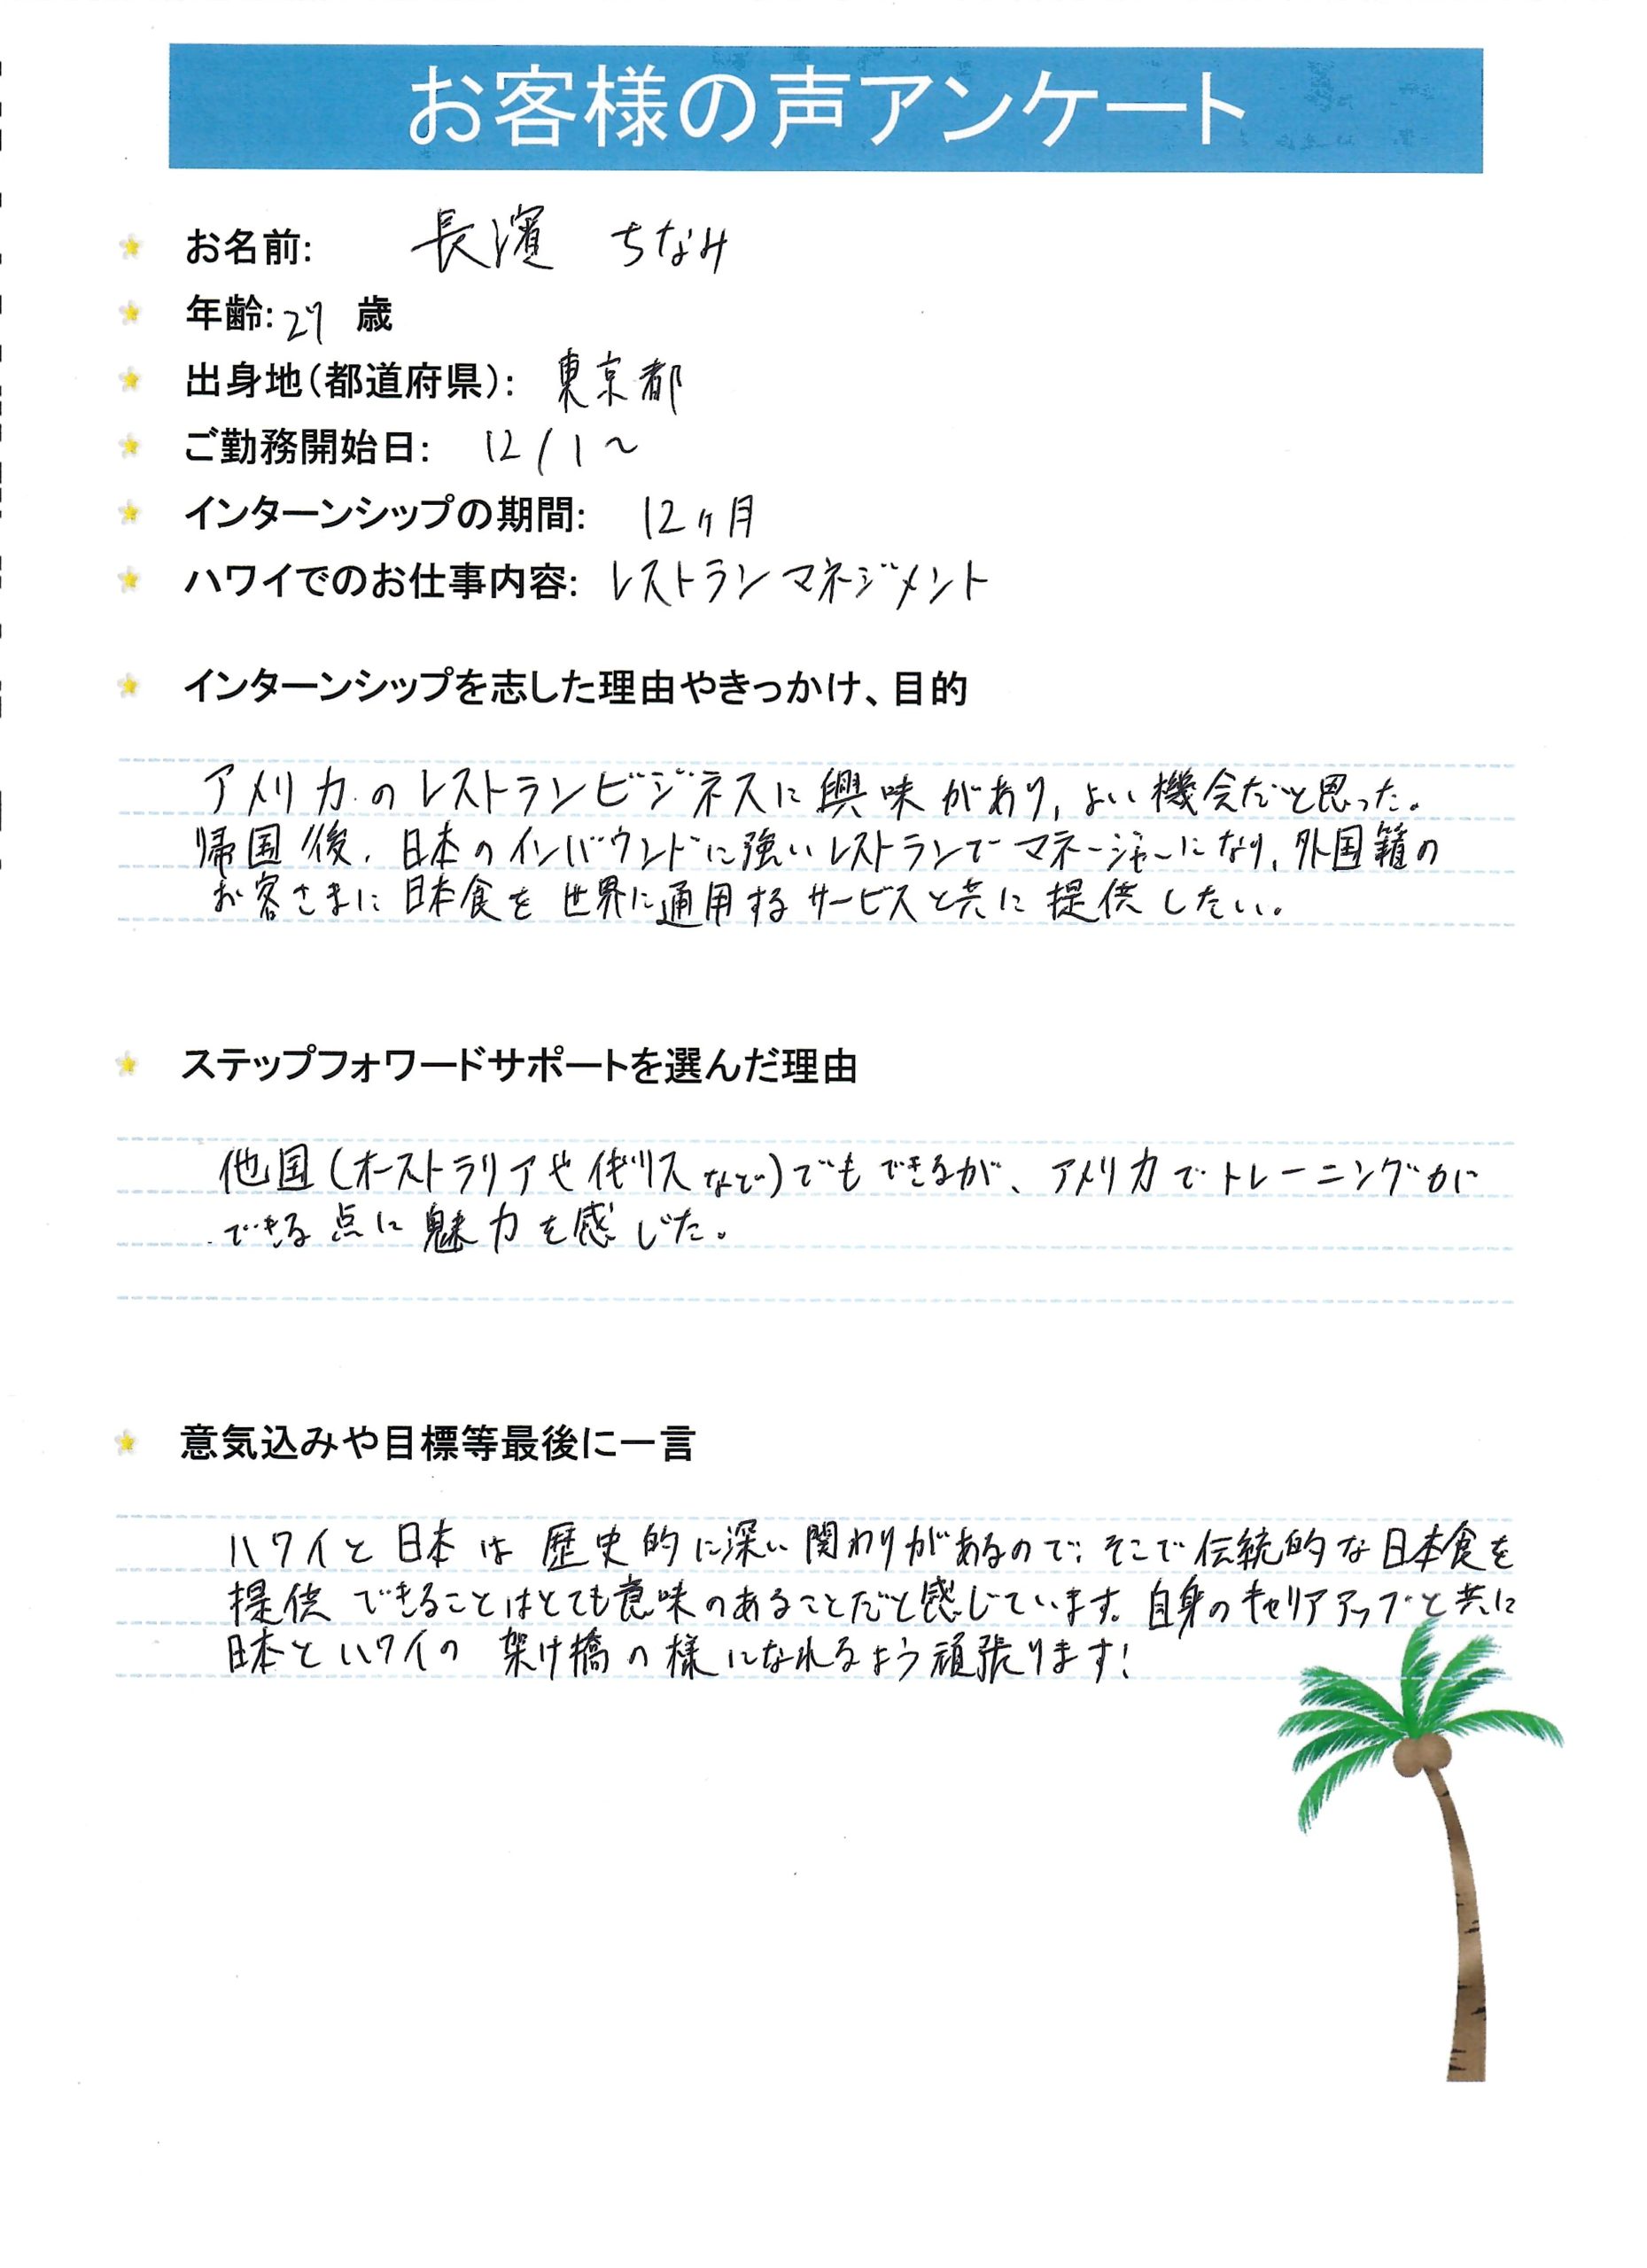 お客様の声アンケート
お名前: 長濱 ちなみ
年齢: 27 歳
出身地(都道府県): 東京都
ご勤務開始日: 12/1~
インターンシップの期間: 12ヶ月
ハワイでのお仕事内容: レストランマネジメント
インターンシップを志した理由やきっかけ、目的
アメリカのレストランビジネスに興味があり、よい機会だと思った。
帰国後、日本のインバウンドに強いレストランでマネージャーになり、外国籍の
お客さまに日本食を世界に通用するサービスと共に提供したい。
ステップフォワードサポートを選んだ理由
他国(オーストラリアやイギリスなど)でもできるが、アメリカでトレーニングが
できる点に魅力を感じた。
意気込みや目標等最後に一言
ハワイと日本は歴史的に深い関わりがあるので、そこで伝統的な日本食を
提供できることはとても意味のあることだと感じています。自身のキャリアアップと共に
日本とハワイの架け橋の様になれるよう頑張ります!